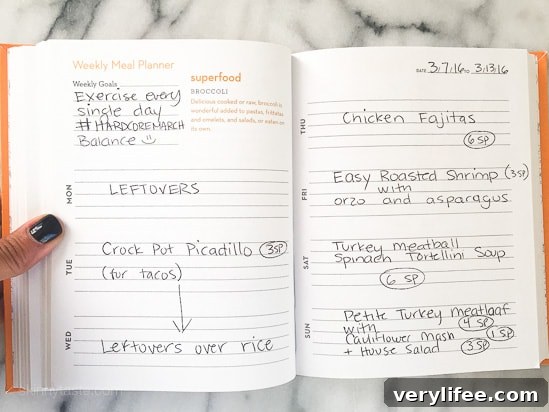 Weekly Meal Planner
Weekly Goals
Exercise every
single day
#HARDCOREMARCH
Balance
superfood
BROCCOLI
Delicious cooked or raw, broccoli is
wonderful added to pastas, frittatas
and omelets, and salads, or eaten on
its own.
MON
LEFTOVERS
TUE
Crock Pot Picadillo 3SP
(for tacos)
WED
Leftovers over rice
DATE 3/7/16 TO 3/13/16
THU
Chicken Fajitas
6 SP
FRI
Easy Roasted Shrimp (3SP)
with
orzo and asparagus
SAT
Turkey meatball
Spinach Tortellini Soup
6 SP
SUN
Petite Turkey meatloaf
with 4 SP
Cauliflower Mash 1 SP
+ House Salad 3 SP
verylifee.com